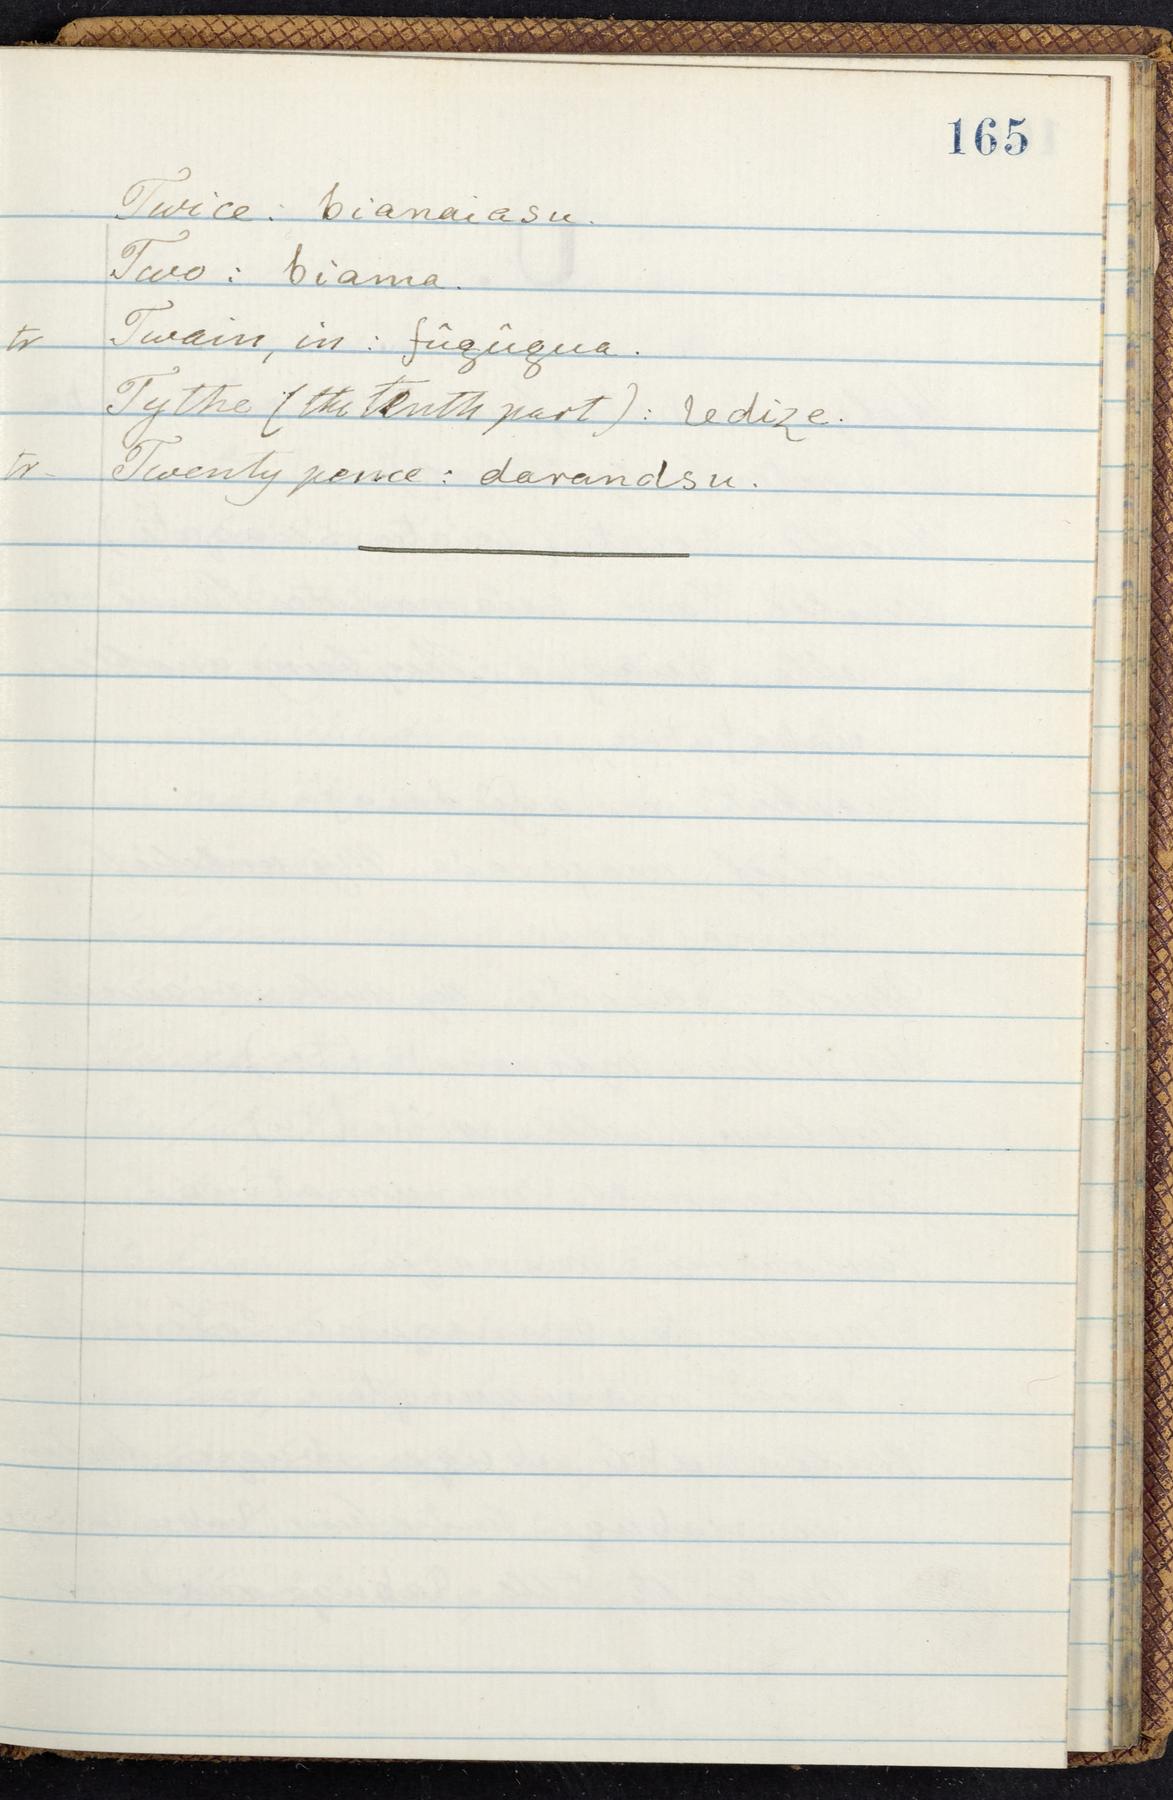 165
Twice: bianaiasu.
Two: biama.
tr Twain, in: fûgûgua.
Tythe (the tenth part): ledize.
tr- Twenty pence: darandsu.